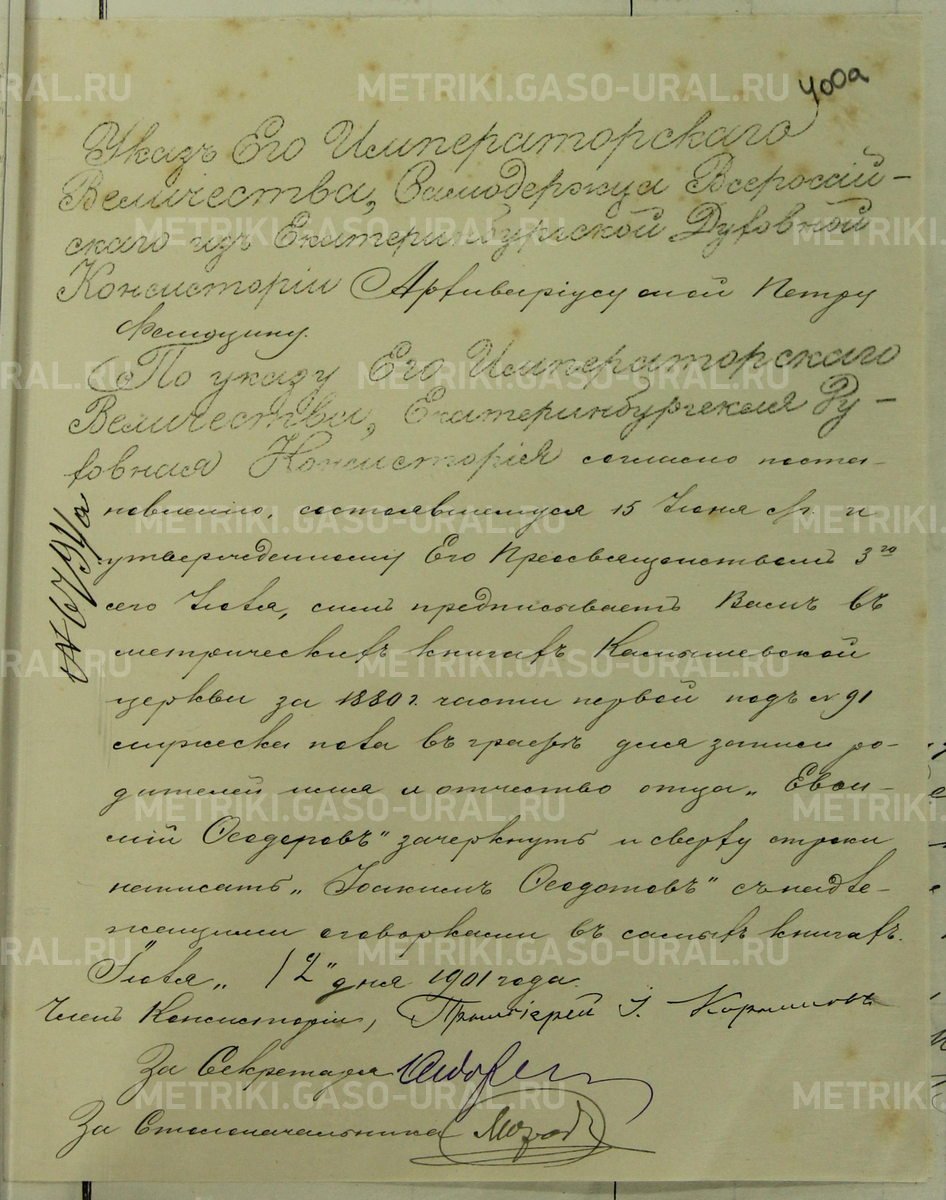 400а
Указъ Его Императорскаго
Величества, Самодержца Всероссій-
скаго изъ Екатеринбургской Духовной
Консисторіи Архиваріусу оной Петру
По указу Его Императорскаго
Величества, Екатеринбургская Ду-
ховная Консисторія согласно поста-
новленію, состоявшемуся 15 Іюня с/г. и
утвержденному Его Преосвященствомъ 3го
сего Іюля, симъ предписываетъ Вамъ въ
метрическихъ книгахъ Камышевской
церкви за 1880 г. части первой подъ № 91
мужеска пола въ графѣ для записи ро-
дителей имя и отчество отца „Евѳи-
мій Ѳеодоровъ" зачеркнуть и сверху строки
написать „Іоакимъ Ѳеодотовъ" съ надле-
жащими оговорками въ самыхъ книгахъ.
Іюля „12" дня 1901 года.
Членъ Консисторіи, Протоіерей І.
За Секретаря
За Столоначальника
METRIKI.GASO-URAL.RU